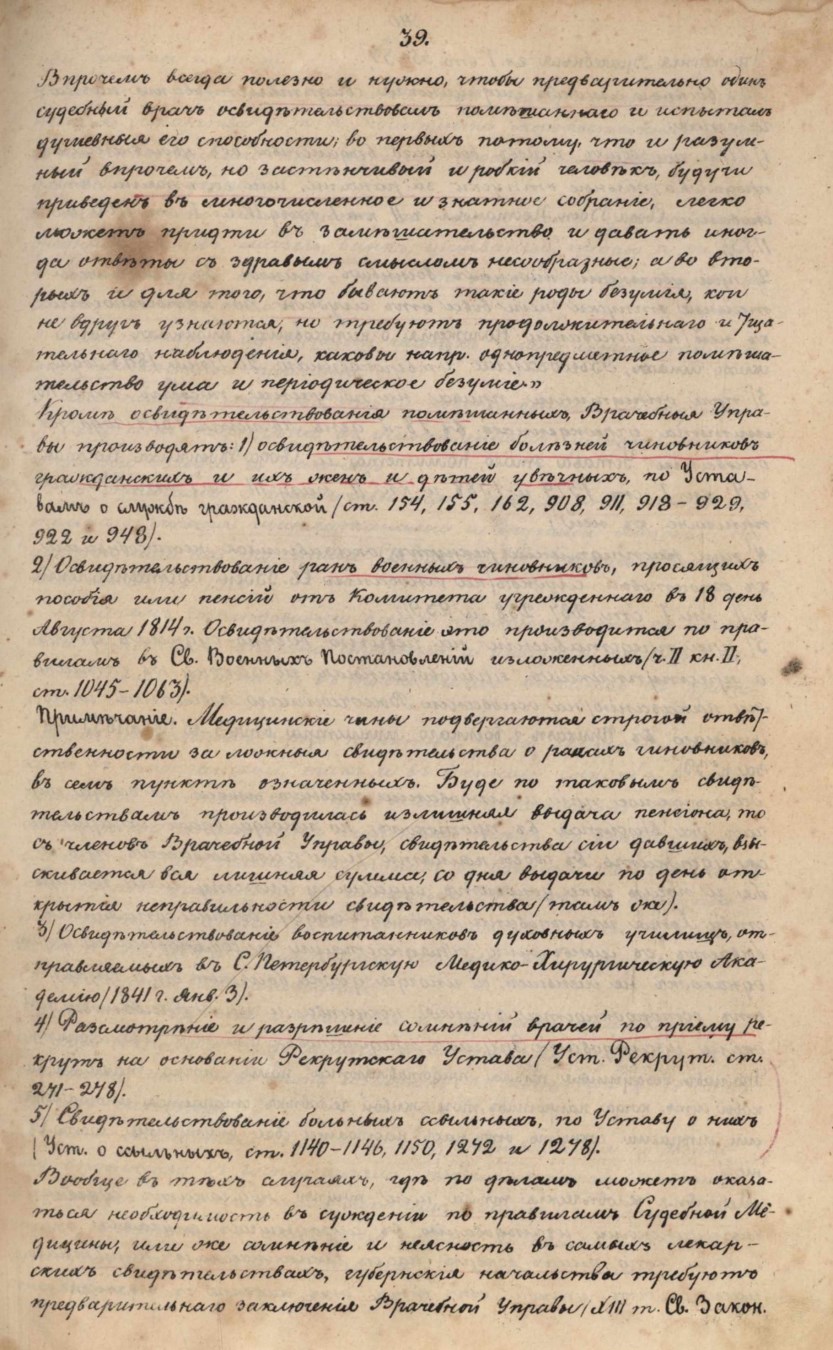 39.
Впрочемъ всегда полезно и нужно, чтобы предварительно одинъ
судебный врачъ освидѣтельствовалъ помѣшаннаго и испыталъ
душевныя его способности; во первыхъ потому, что и разум-
ный впрочемъ, но застѣнчивый и робкій человѣкъ, будучи
приведенъ въ многочисленное и знатное собраніе, легко
можетъ придти въ замѣшательство и давать иног-
да отвѣты съ здравымъ смысломъ несообразные; а во вто-
рыхъ и для того, что бываютъ такіе роды безумія, кои
не вдругъ узнаются, но требуютъ продолжительнаго и тща-
тельнаго наблюденія, каковы напр. однопредметное помѣша-
тельство ума и періодическое безуміе.»
Кромѣ освидѣтельствованія помѣшанныхъ, Врачебныя Упра-
вы производятъ: 1) освидѣтельствованіе болѣзней чиновниковъ
гражданскихъ и ихъ женъ и дѣтей увѣчныхъ, по Уста-
вамъ о службѣ гражданской /ст. 154, 155, 162, 908, 911, 913-929,
922 и 943/.
2/ Освидѣтельствованіе ранъ военныхъ чиновниковъ, просящихъ
пособія или пенсій отъ Комитета учрежденнаго въ 18 день
Августа 1814 г. Освидѣтельствованіе это производится по пра-
виламъ въ Св. Военныхъ Постановленій изложенныхъ /ч. II кн. II,
ст. 1045-1063/.
Примѣчаніе. Медицинскіе чины подвергаются строгой отвѣт-
ственности за ложныя свидѣтельства о ранахъ чиновниковъ,
въ семъ пунктѣ означенныхъ. Буде по таковымъ свидѣ-
тельствамъ производилась излишняя выдача пенсіона, то
съ членовъ Врачебной Управы, свидѣтельства сіи давшихъ, взы-
скивается вся лишняя сумма, со дня выдачи по день от-
крытія неправильности свидѣтельства /тамъ же/.
3/ Освидѣтельствованіе воспитанниковъ духовныхъ училищъ, от-
правляемыхъ въ С. Петербургскую Медико-Хирургическую Ака-
демію /1841 г. Янв. 3/.
4/ Разсмотрѣніе и разрѣшеніе сомнѣній врачей по пріему ре-
крутъ на основаніи Рекрутскаго Устава /Уст. Рекрут. ст.
271-278/.
5/ Свидѣтельствованіе больныхъ ссыльныхъ, по Уставу о нихъ
/Уст. о ссыльныхъ, ст. 1140-1146, 1150, 1272 и 1278/.
Вообще въ тѣхъ случаяхъ, гдѣ по дѣламъ можетъ оказа-
ться необходимость въ сужденіи по правиламъ Судебной Ме-
дицины, или же сомнѣніе и неясность въ самыхъ лекар-
скихъ свидѣтельствахъ, губернскія начальства требуютъ
предварительнаго заключенія Врачебной Управы /XIII т. Св. Закон.